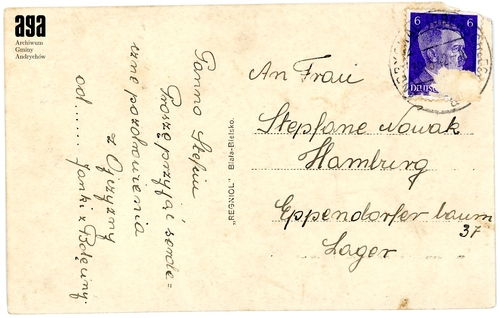 aga
Archiwum
Gminy
Andrychów
Panno Stefciu
Proszę przyjąć serde=
czne pozdrowienia
z Ojczyzny
od ..... Janki z Bolęciny.
„REGNIOL” Biała-Bielsko.
6 6
An Frau
Stepfane Nowak
Hamburg
Eppendorfer baum
37
Lager